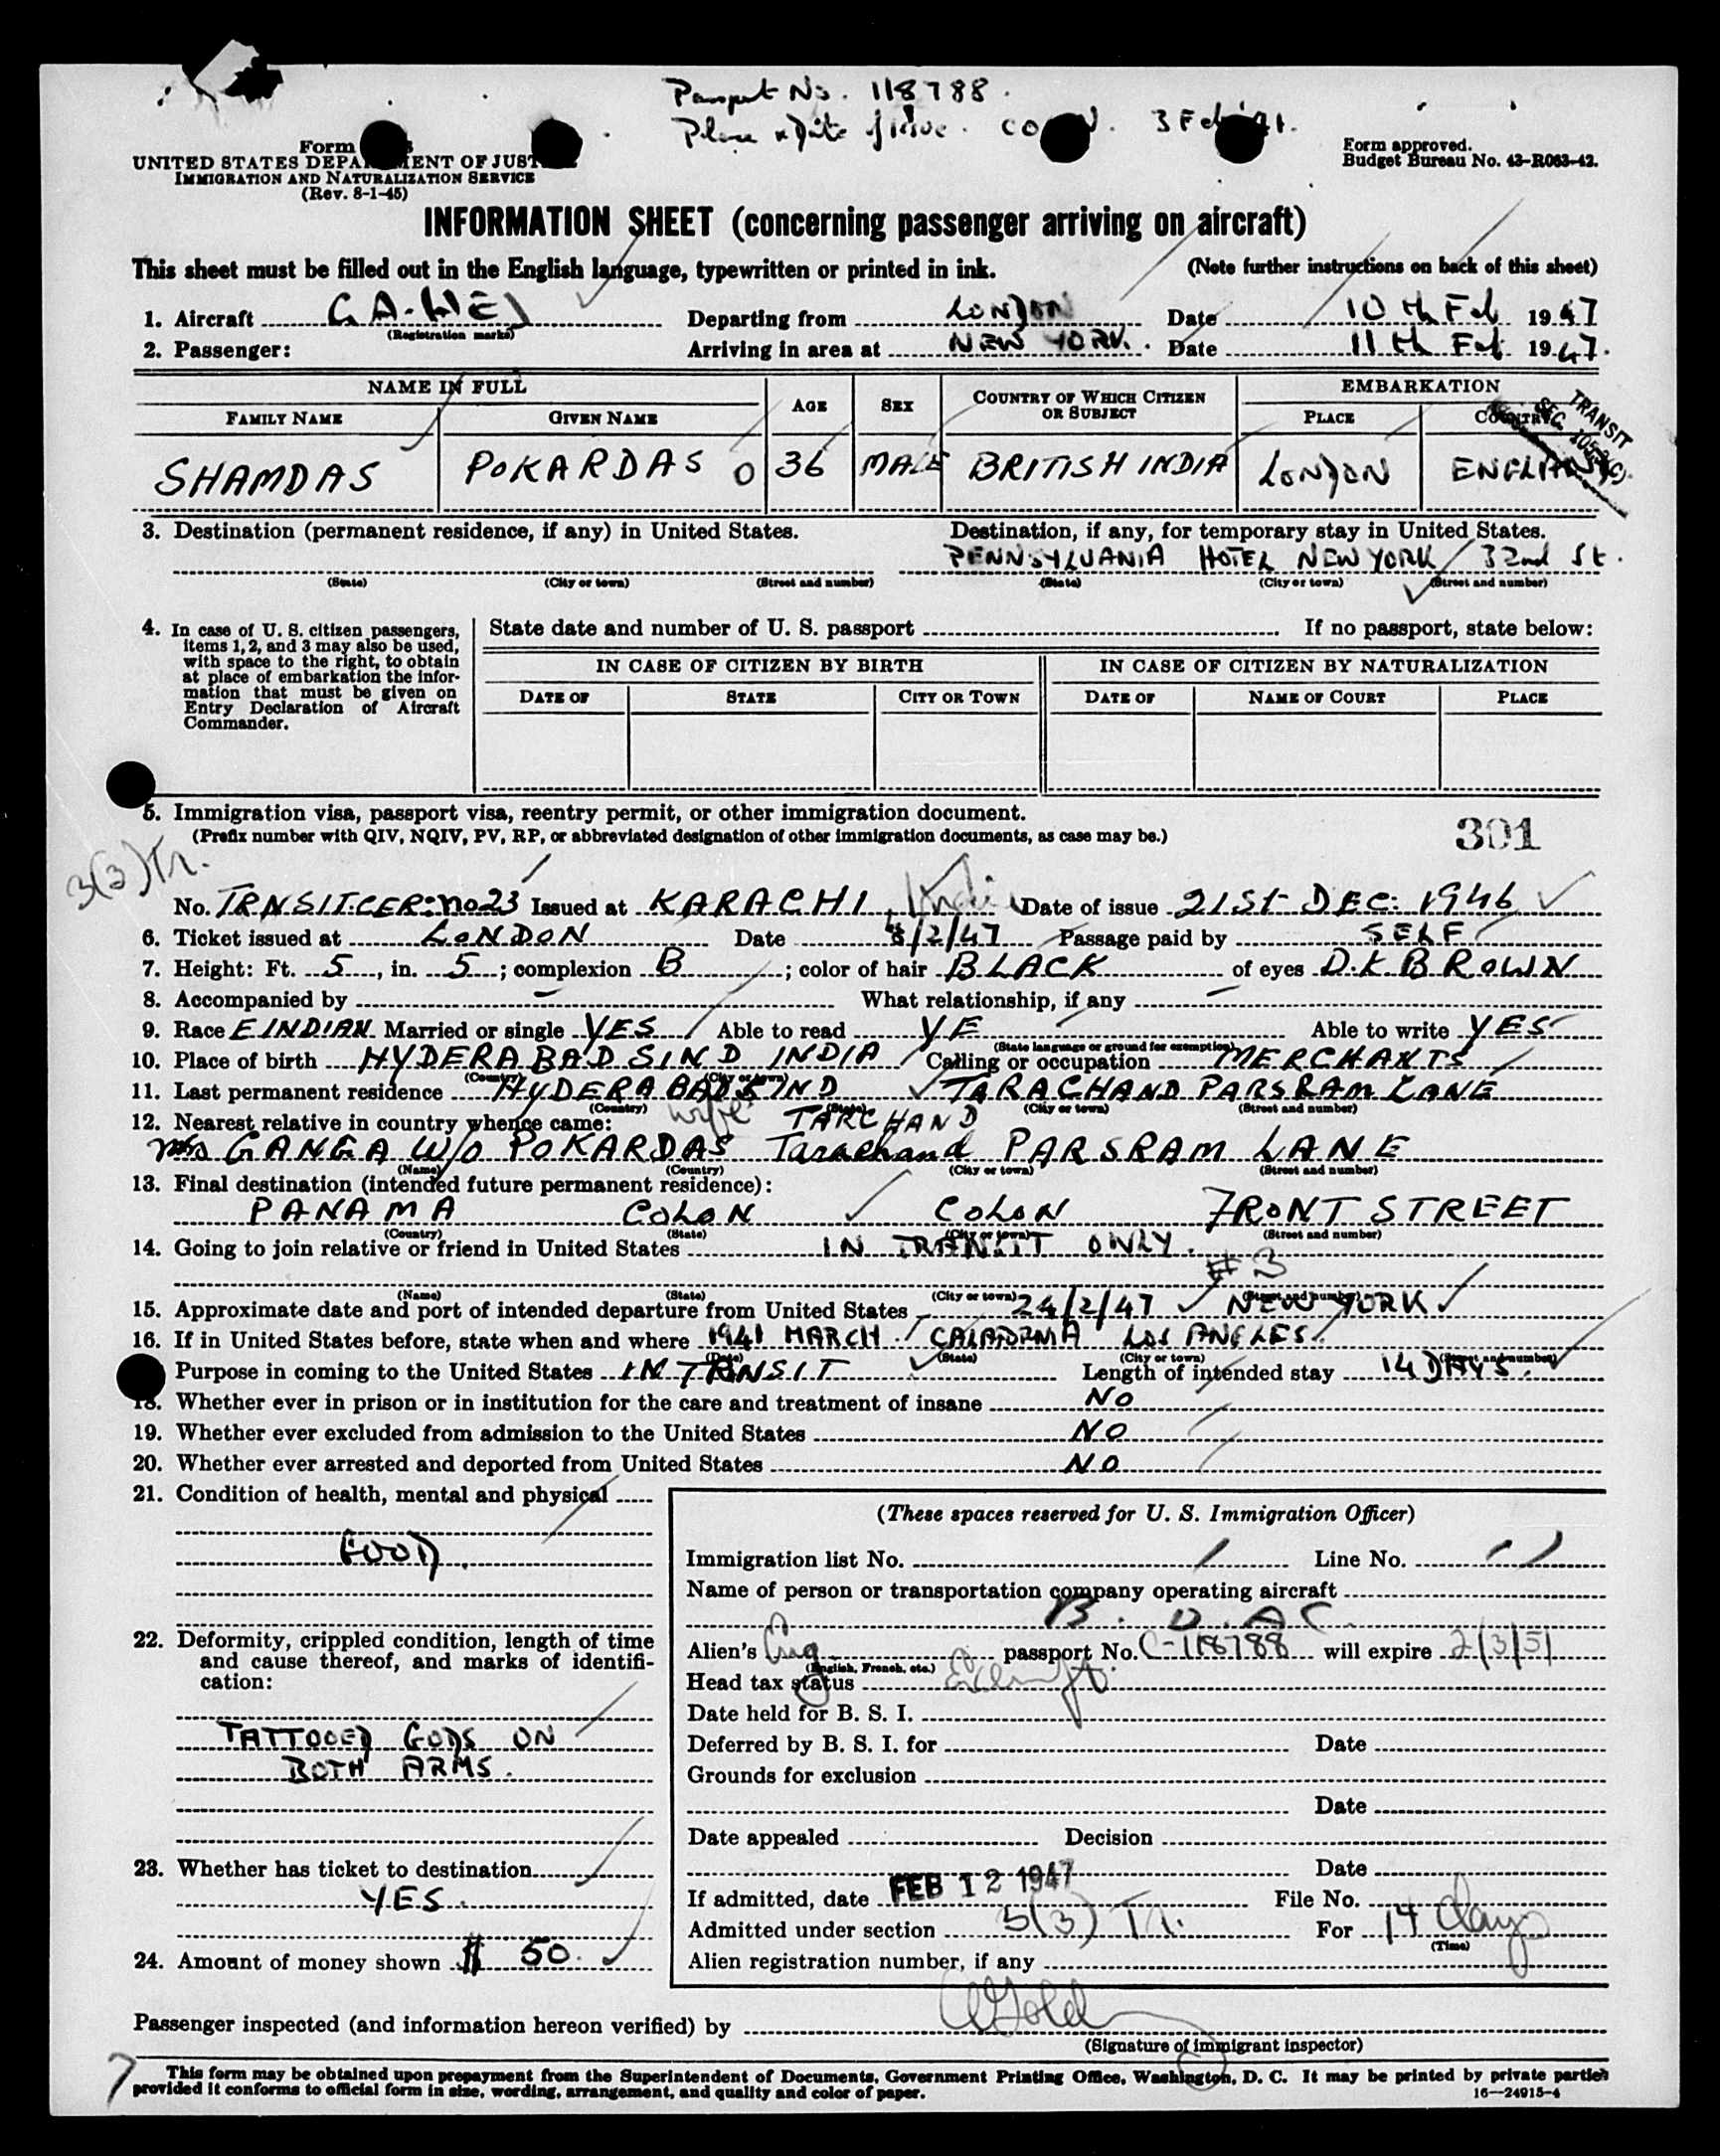 Passport No. 118788.
Place & Date of issue. CO 3 Feb
Form
UNITED STATES DEPARTMENT OF JUSTICE
IMMIGRATION AND NATURALIZATION SERVICE
(Rev. 8-1-45)
Form approved.
Budget Bureau No. 43-R063-42.
INFORMATION SHEET (concerning passenger arriving on aircraft)
This sheet must be filled out in the English language, typewritten or printed in ink. (Note further instructions on back of this sheet)
1. Aircraft Departing from LONDON Date 10th Feb 1947
(Registration marks)
2. Passenger: Arriving in area at NEW YORK. Date 11th Feb. 1947.
NAME IN FULL AGE SEX COUNTRY OF WHICH CITIZEN OR SUBJECT EMBARKATION
FAMILY NAME GIVEN NAME PLACE COUNTRY
TRANSIT
SEC. 105.3(C)
SHAMDAS POKARDAS O 36 MALE BRITISH INDIA LONDON ENGLAND
3. Destination (permanent residence, if any) in United States. Destination, if any, for temporary stay in United States.
PENNSYLVANIA HOTEL NEW YORK 32nd St.
(State) (City or town) (Street and number) (State) (City or town) (Street and number)
4. In case of U. S. citizen passengers, items 1, 2, and 3 may also be used, with space to the right, to obtain at place of embarkation the information that must be given on Entry Declaration of Aircraft Commander.
State date and number of U. S. passport If no passport, state below:
IN CASE OF CITIZEN BY BIRTH IN CASE OF CITIZEN BY NATURALIZATION
DATE OF STATE CITY OR TOWN DATE OF NAME OF COURT PLACE
5. Immigration visa, passport visa, reentry permit, or other immigration document.
(Prefix number with QIV, NQIV, PV, RP, or abbreviated designation of other immigration documents, as case may be.)
301
3(3)Tr.
No. TRNSIT.CER: no 23 Issued at KARACHI India Date of issue 21st DEC: 1946
6. Ticket issued at LONDON Date 8/2/47 Passage paid by SELF
7. Height: Ft. 5, in. 5; complexion B; color of hair BLACK of eyes D.K BROWN
8. Accompanied by - What relationship, if any -
9. Race E INDIAN Married or single YES Able to read YE Able to write YES
(State language or ground for exemption)
10. Place of birth HYDERABAD SIND INDIA Calling or occupation MERCHANTS
(Country) (City or town)
11. Last permanent residence HYDERABAD SIND TARACHAND PARSRAM LANE
(Country) (State) (City or town) (Street and number)
12. Nearest relative in country whence came: wife TARCHAND
Mrs GANGA W/O POKARDAS Tarachand PARSRAM LANE
(Name) (Country) (City or town) (Street and number)
13. Final destination (intended future permanent residence):
PANAMA COLON COLON FRONT STREET
(Country) (State) (City or town) (Street and number)
14. Going to join relative or friend in United States IN TRANSIT ONLY.
#3
(Name) (State) (City or town) (Street and number)
15. Approximate date and port of intended departure from United States 24/2/47 NEW YORK
16. If in United States before, state when and where 1941 MARCH. CALAFORNIA LOS ANGLES.
(Date) (State) (City or town) (Street and number)
Purpose in coming to the United States IN TRANSIT Length of intended stay 14 DAYS.
18. Whether ever in prison or in institution for the care and treatment of insane NO
19. Whether ever excluded from admission to the United States NO
20. Whether ever arrested and deported from United States NO
21. Condition of health, mental and physical
GOOD.
22. Deformity, crippled condition, length of time and cause thereof, and marks of identification:
TATTOOED GODS ON
BOTH ARMS.
23. Whether has ticket to destination
YES.
24. Amount of money shown $ 50.
(These spaces reserved for U. S. Immigration Officer)
Immigration list No. Line No.
Name of person or transportation company operating aircraft
B. O. A C.
Alien's Eng passport No. C-118788 will expire 2/3/51
(English, French, etc.)
Head tax status Exempt
Date held for B. S. I.
Deferred by B. S. I. for Date
Grounds for exclusion
Date
Date appealed Decision
Date
If admitted, date FEB 12 1947 File No.
Admitted under section 3(3) Tr. For 14 days
(Time)
Alien registration number, if any
Passenger inspected (and information hereon verified) by
(Signature of immigrant inspector)
7
This form may be obtained upon prepayment from the Superintendent of Documents, Government Printing Office, Washington, D. C. It may be printed by private parties
provided it conforms to official form in size, wording, arrangement, and quality and color of paper. 16—24915-4